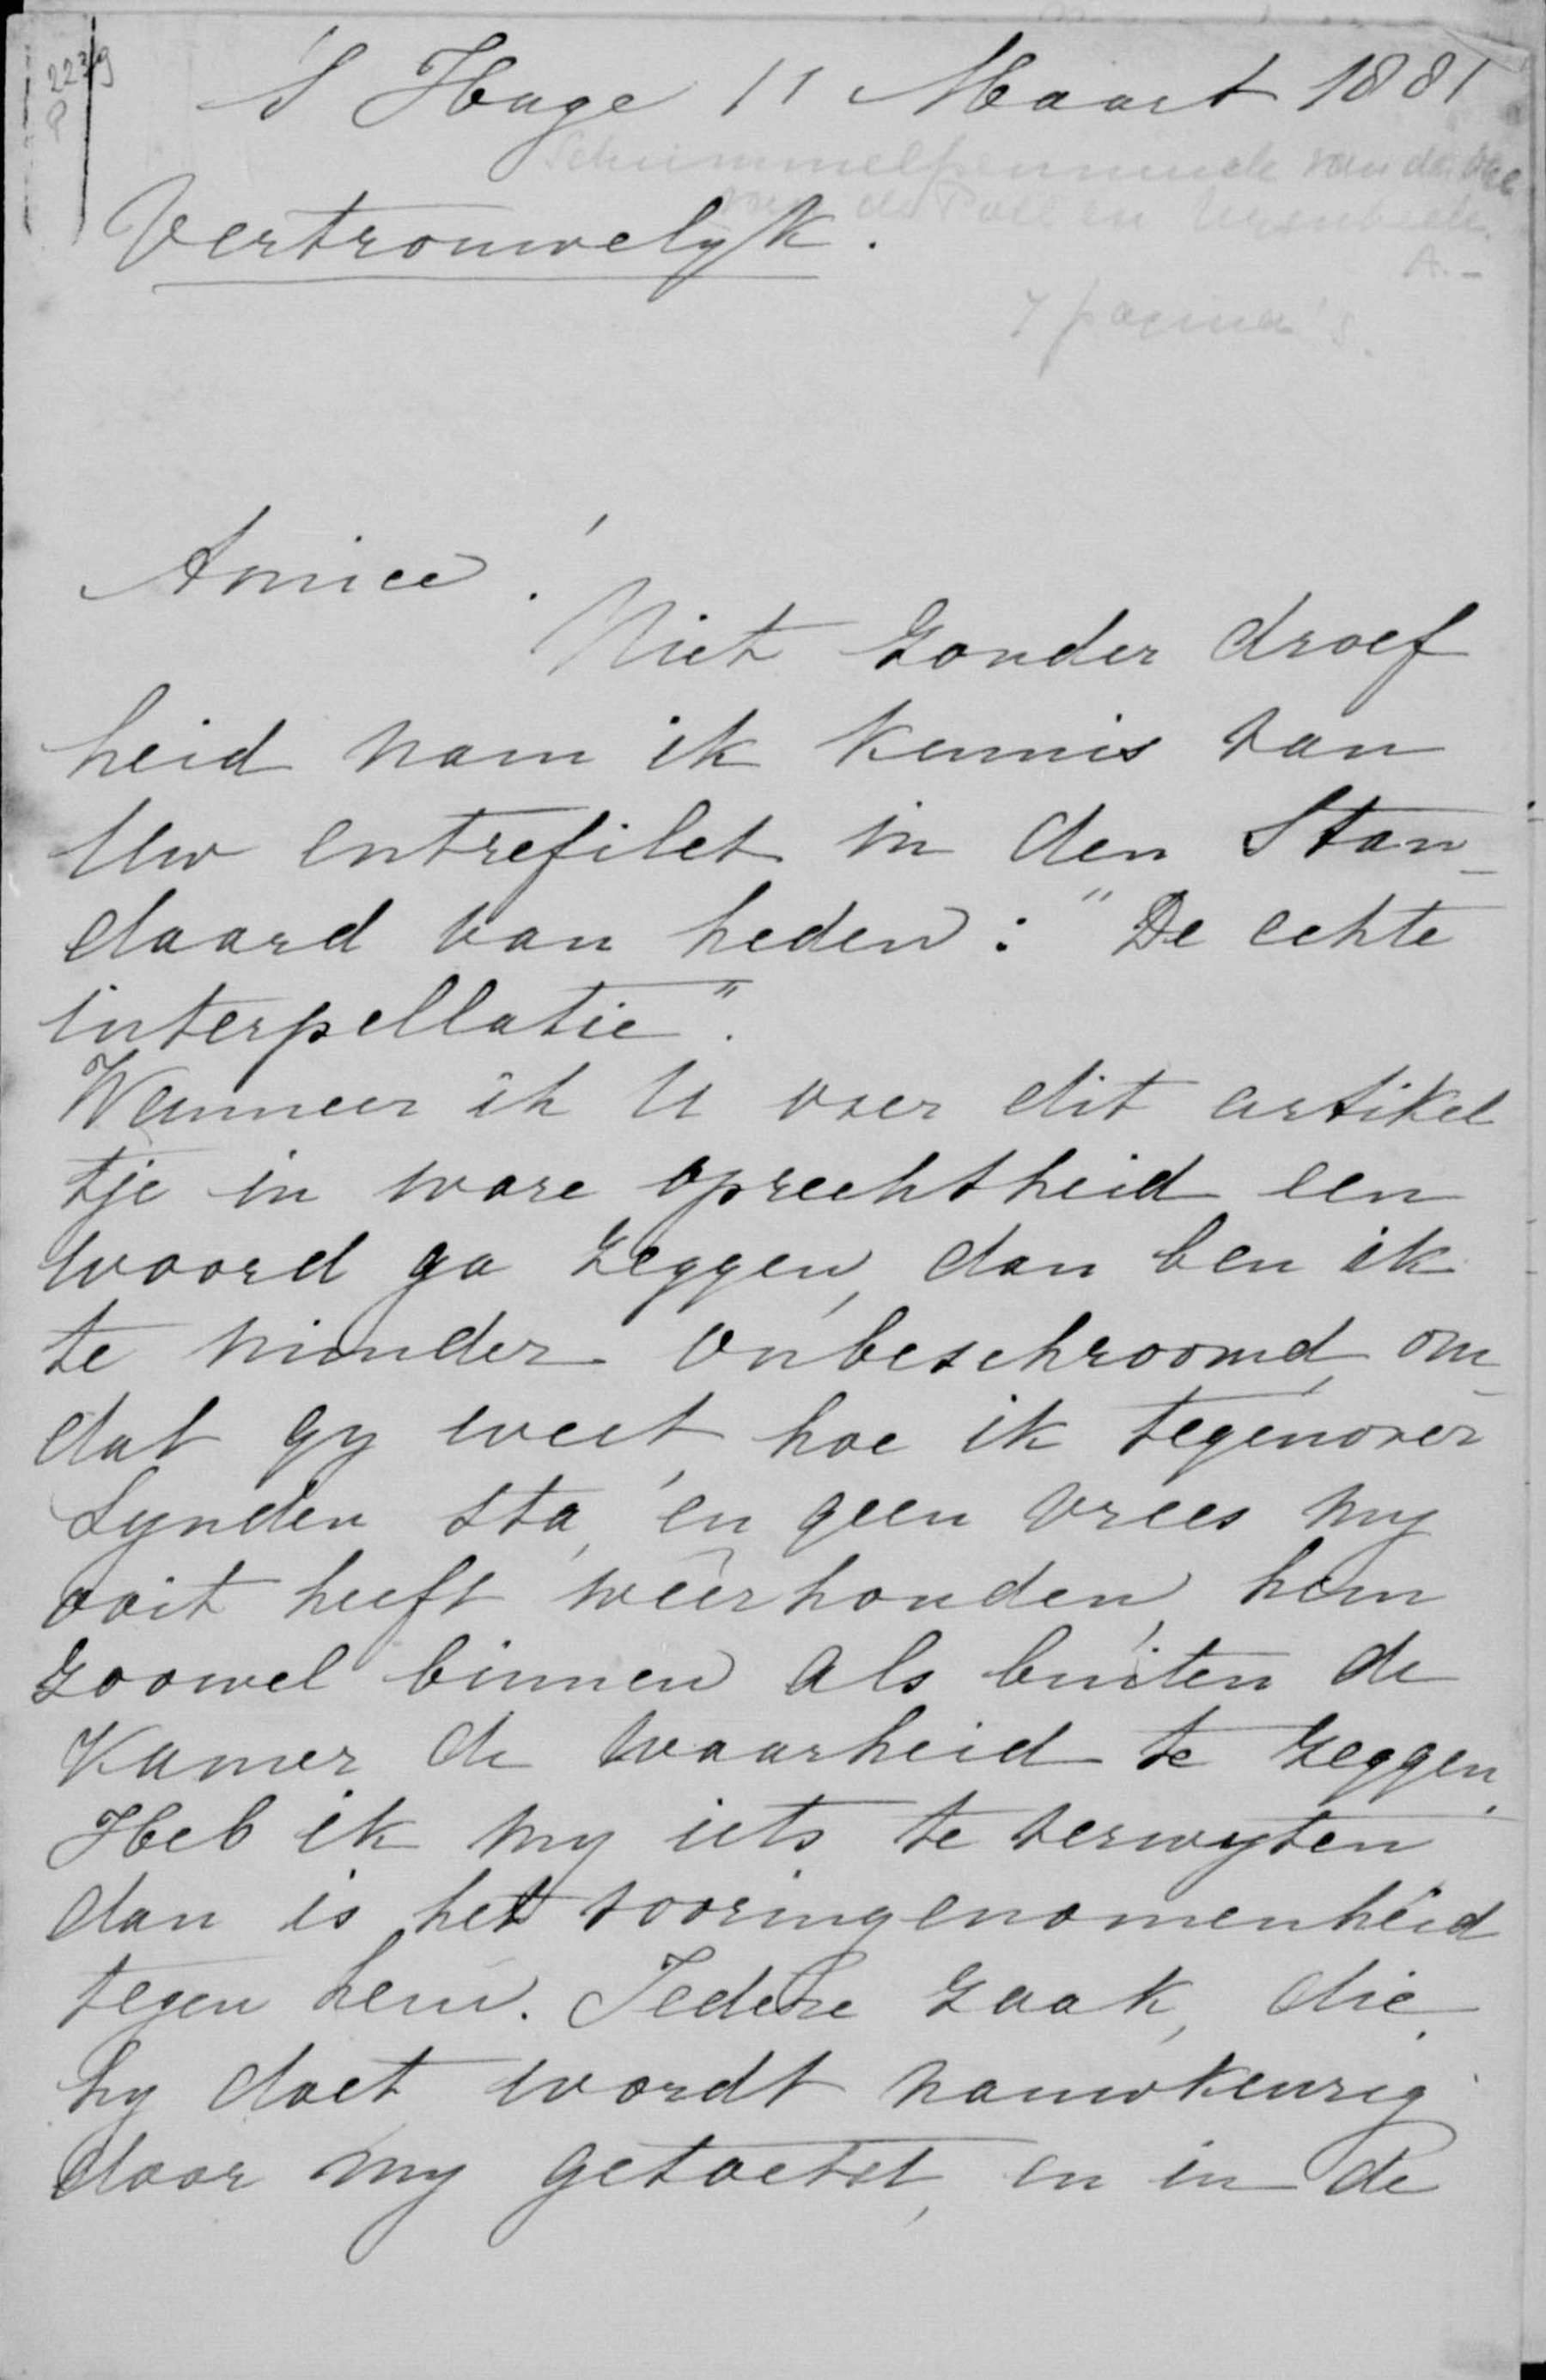 'S Hage 11 Maart 1881
Schimmelpenninck van der Oye
van de Poll en
A.-
7 pagina's
Vertrouwelyk.
Amice!
Niet zonder droef
heid nam ik kennis van
Uw entrefilet in den Stan-
daard van heden: "De echte
interpellatie".
Wanneer ik U over dit artikel
tje in ware oprechtheid een
woord ga zeggen, dan ben ik
te minder onbeschroomd, om-
dat gy weet, hoe ik tegenover
Lynden sta, en geen vrees my
ooit heeft weêrhouden, hem
zoowel binnen als buiten de
Kamer de waarheid te zeggen.
Heb ik my iets te verwyten
dan is het vooringenomenheid
tegen hem. Iedere zaak, die
hy doet wordt nauwkeurig
door my getoetst, en in de